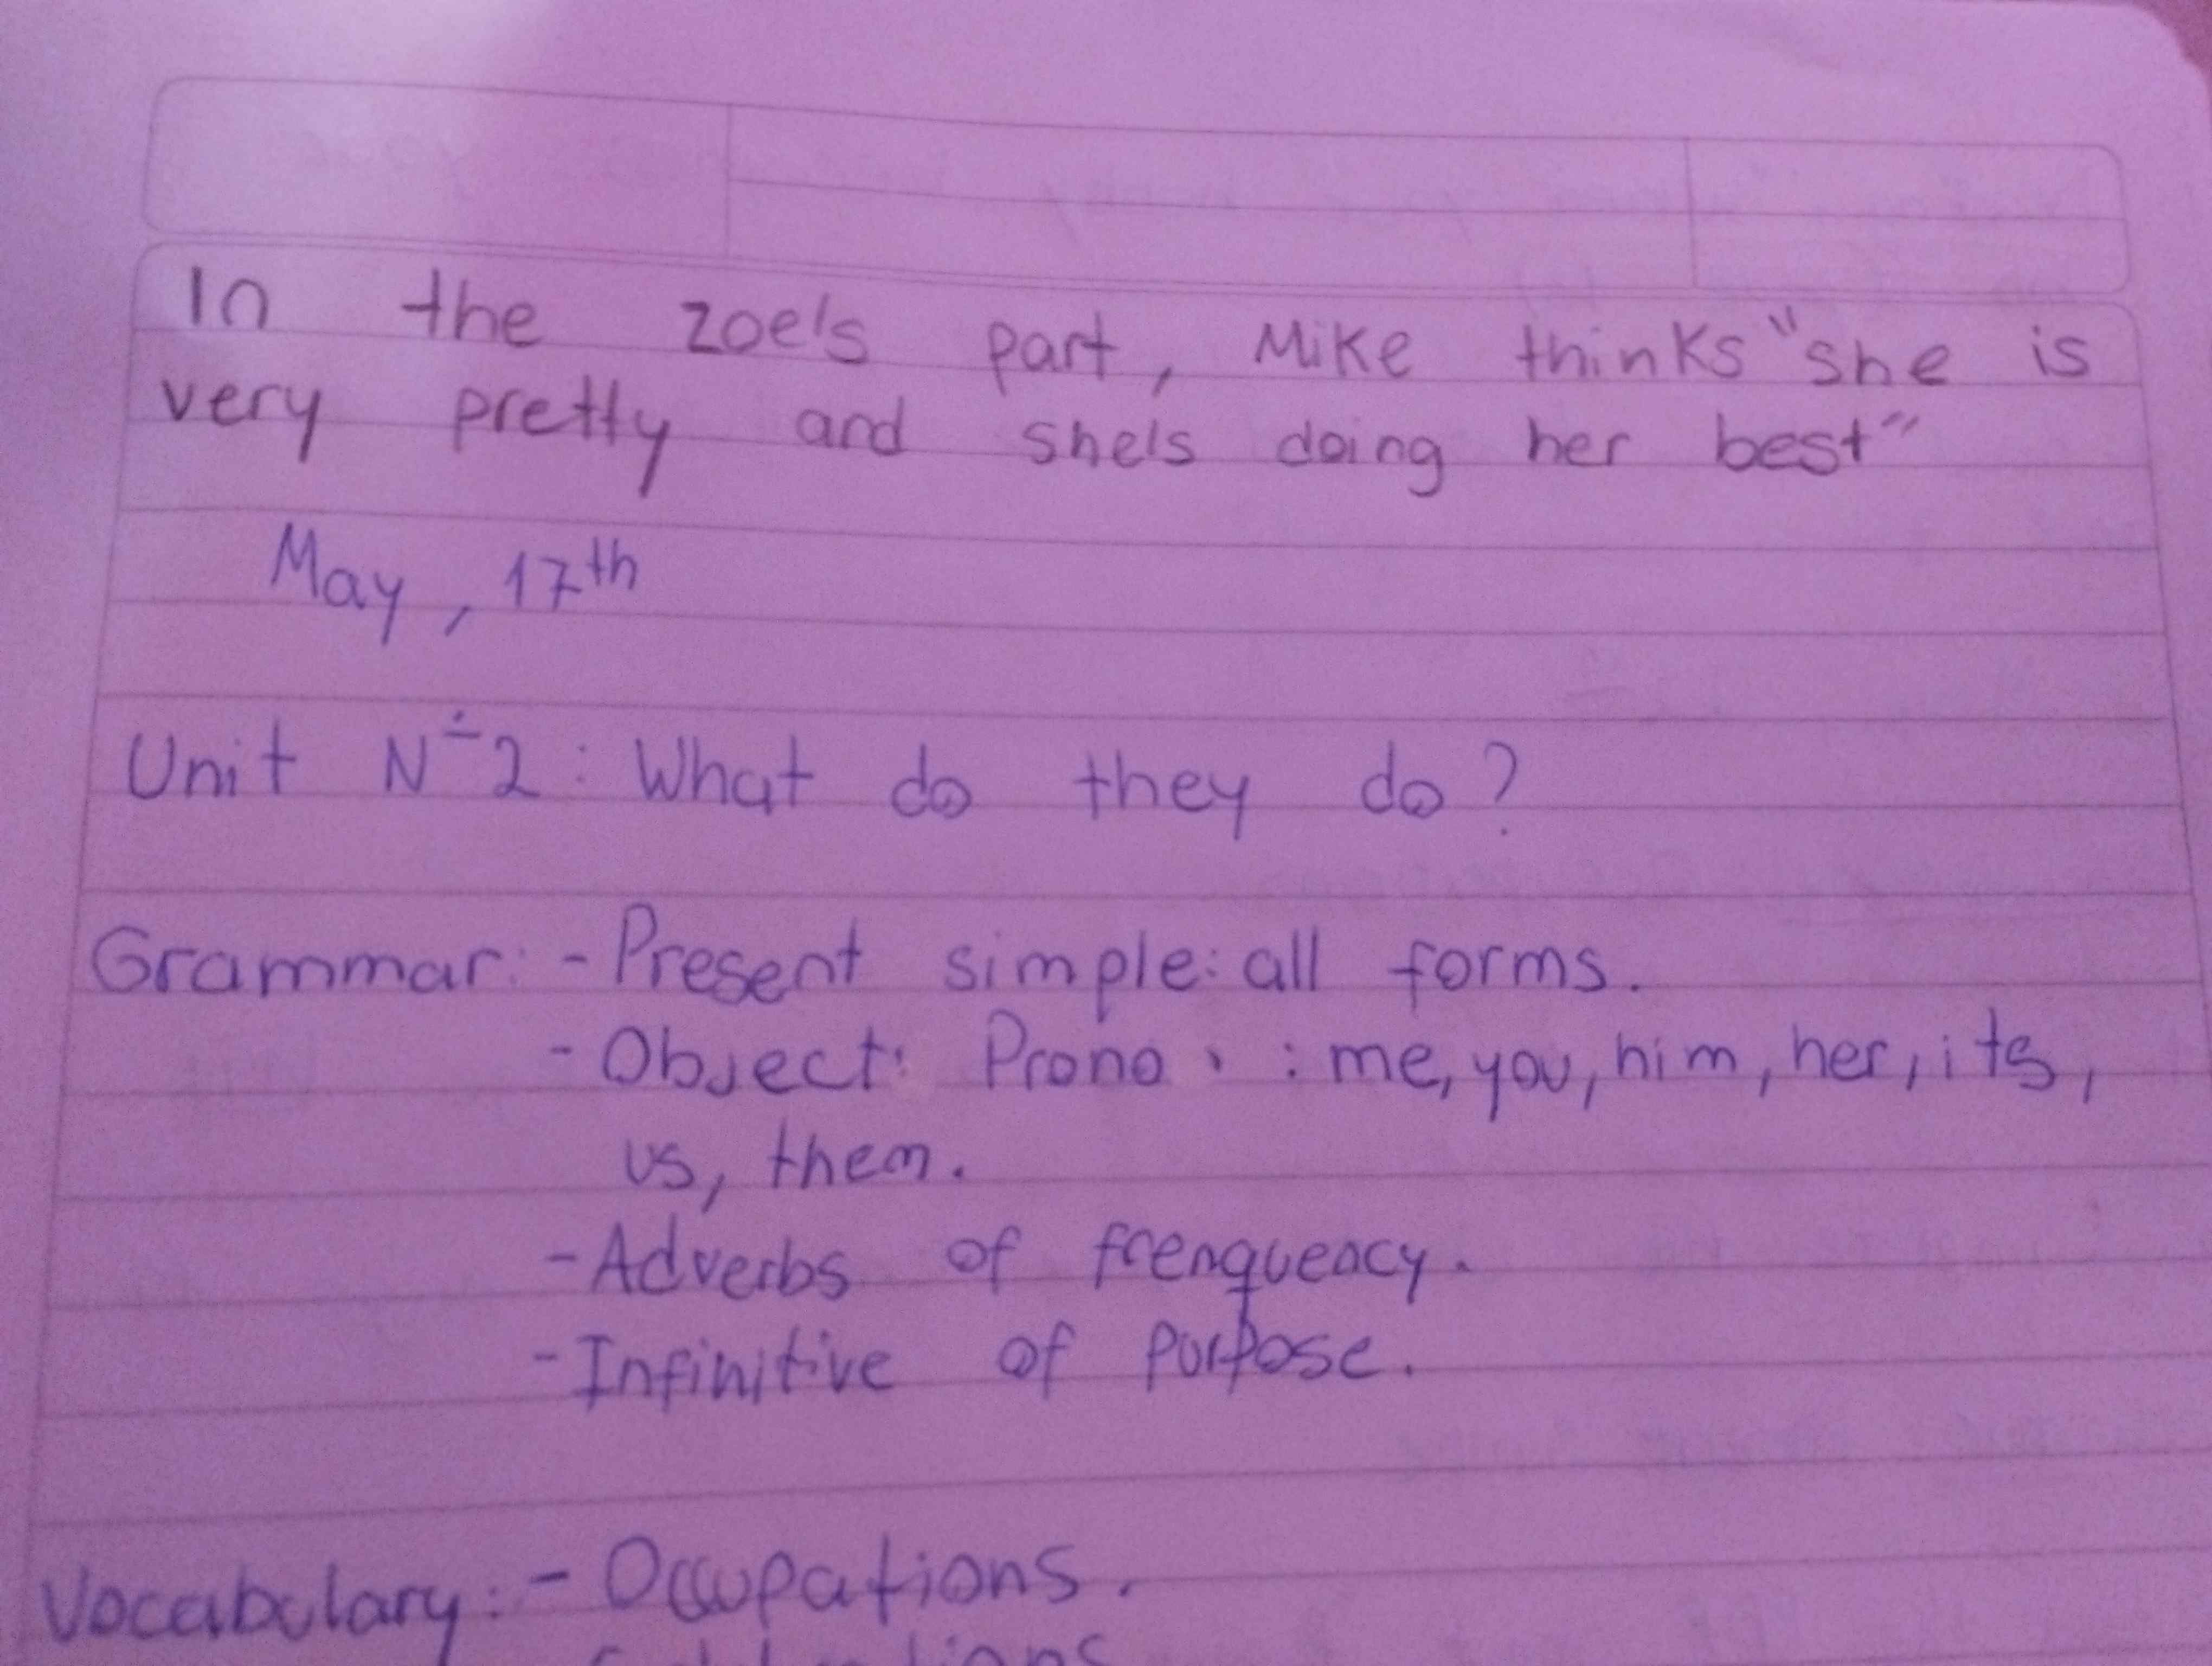 In the zoe's part, Mike thinks "she is
very pretty and she's doing her best"
May, 17th
Unit N÷2: What do they do?
Grammar: - Present simple: all forms.
- Object: Prono. : me, you, him, her, its,
us, them.
- Adverbs of frenquency.
- Infinitive of purpose.
Vocabulary: - Occupations.